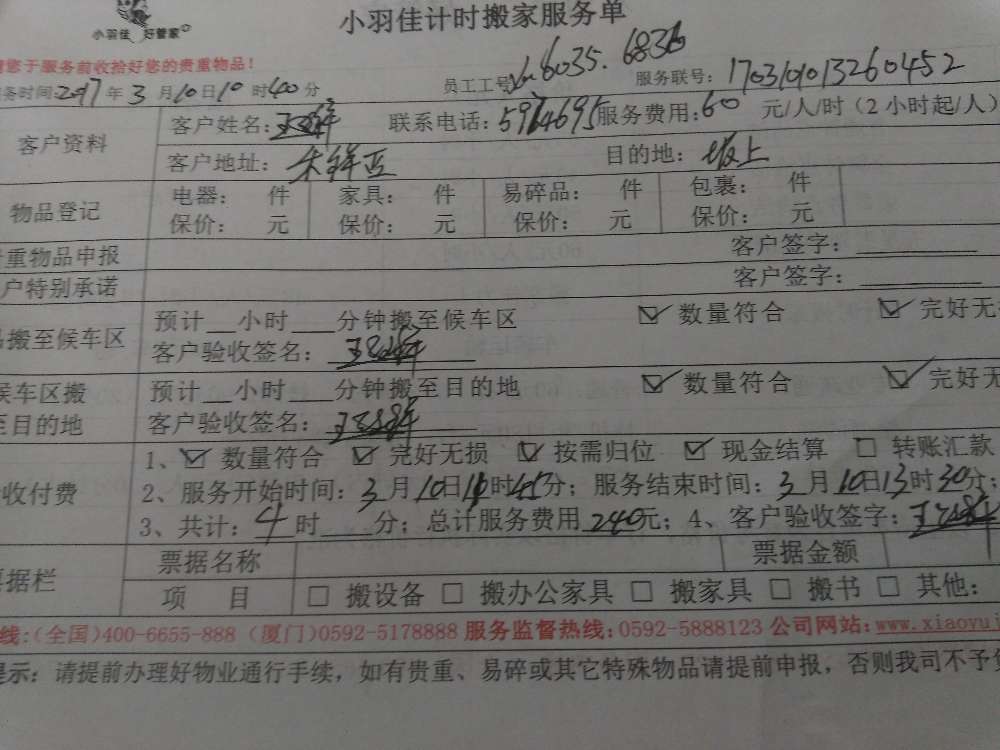 小羽佳计时搬家服务单
小羽佳 好管家
您于服务前收拾好您的贵重物品！
员工工号 6035.6836 服务联号：1703101013260452
务时间:2017年3月10日10时40分
客户资料 客户姓名： 联系电话：5964695 服务费用:60 元/人/时（2小时起/人）
客户地址： 目的地：坂上
物品登记 电器： 件 家具： 件 易碎品： 件 包裹： 件
保价： 元 保价： 元 保价： 元 保价： 元
重物品申报 客户签字：
户特别承诺 客户签字：
搬至候车区 预计__小时___分钟搬至候车区 ☑ 数量符合 ☑ 完好无
客户验收签名：
候车区搬至目的地 预计__小时___分钟搬至目的地 ☑ 数量符合 ☑ 完好无
客户验收签名：
收付费 1、☑ 数量符合 ☑ 完好无损 ☑ 按需归位 ☑ 现金结算 □ 转账汇款
2、服务开始时间：3月10日时45分；服务结束时间：3月10日13时30分；
3、共计：4时___分；总计服务费用240元；4、客户验收签字：
票据栏 票据名称 票据金额
项 目 □ 搬设备 □ 搬办公家具 □ 搬家具 □ 搬书 □ 其他：
线:(全国)400-6655-888（厦门)0592-5178888 服务监督热线:0592-5888123 公司网站:www.xiaoyu
提示：请提前办理好物业通行手续，如有贵重、易碎或其它特殊物品请提前申报，否则我司不予